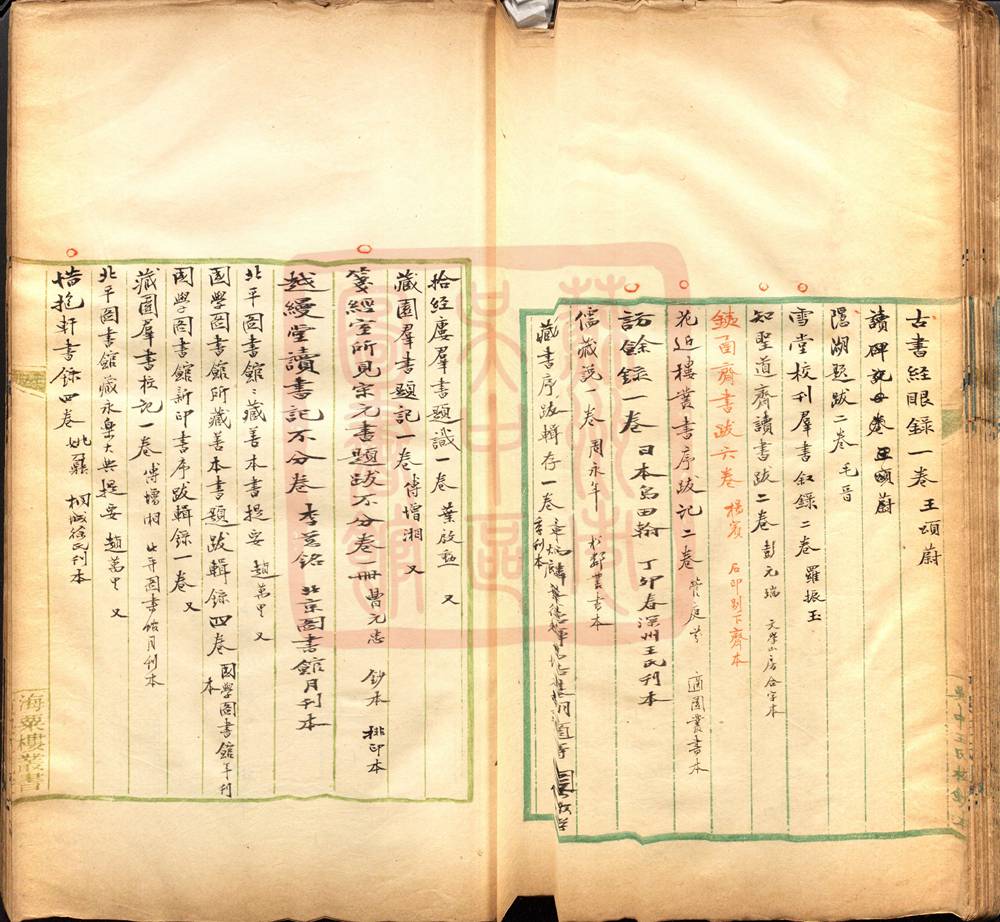 古書經眼録一卷 王頌蔚
讀碑記四卷 王頌蔚
隱湖題跋二卷 毛晋
雪堂校刊羣書叙錄二卷 羅振玉
知聖道齋讀書跋二卷 彭元瑞 文學山房合字本
鐵函齋書跋六卷 楊賓 石印别下齋本
花近樓叢書序跋記二卷 管庭芬 適園叢書本
訪餘録一卷 日本島田翰 丁卯春深州王氏刊本
儒藏説一卷 周永年 松鄰叢書本
藏書序跋輯存一卷
拾經廔羣書題識一卷 葉啟勳 又
藏園羣書題記一卷 傅增湘 又
箋經室所見宋元書題跋不分卷一冊 曹元忠 鈔本 排印本
越縵堂讀書記不分卷 李慈銘 北京圖書館月刊本
北平圖書館藏善本書提要 趙萬里 又
國學圖書館所藏善本書題跋輯録四卷 國學圖書館年刊本
國學圖書館新印書序跋輯録一卷 又
藏園羣書校記一卷 傅增湘 北平圖書館月刊本
北平圖書館藏永樂大典提要 趙萬里 又
惜抱軒書録四卷 姚鼐 桐城徐氏刊本
海粟樓叢書